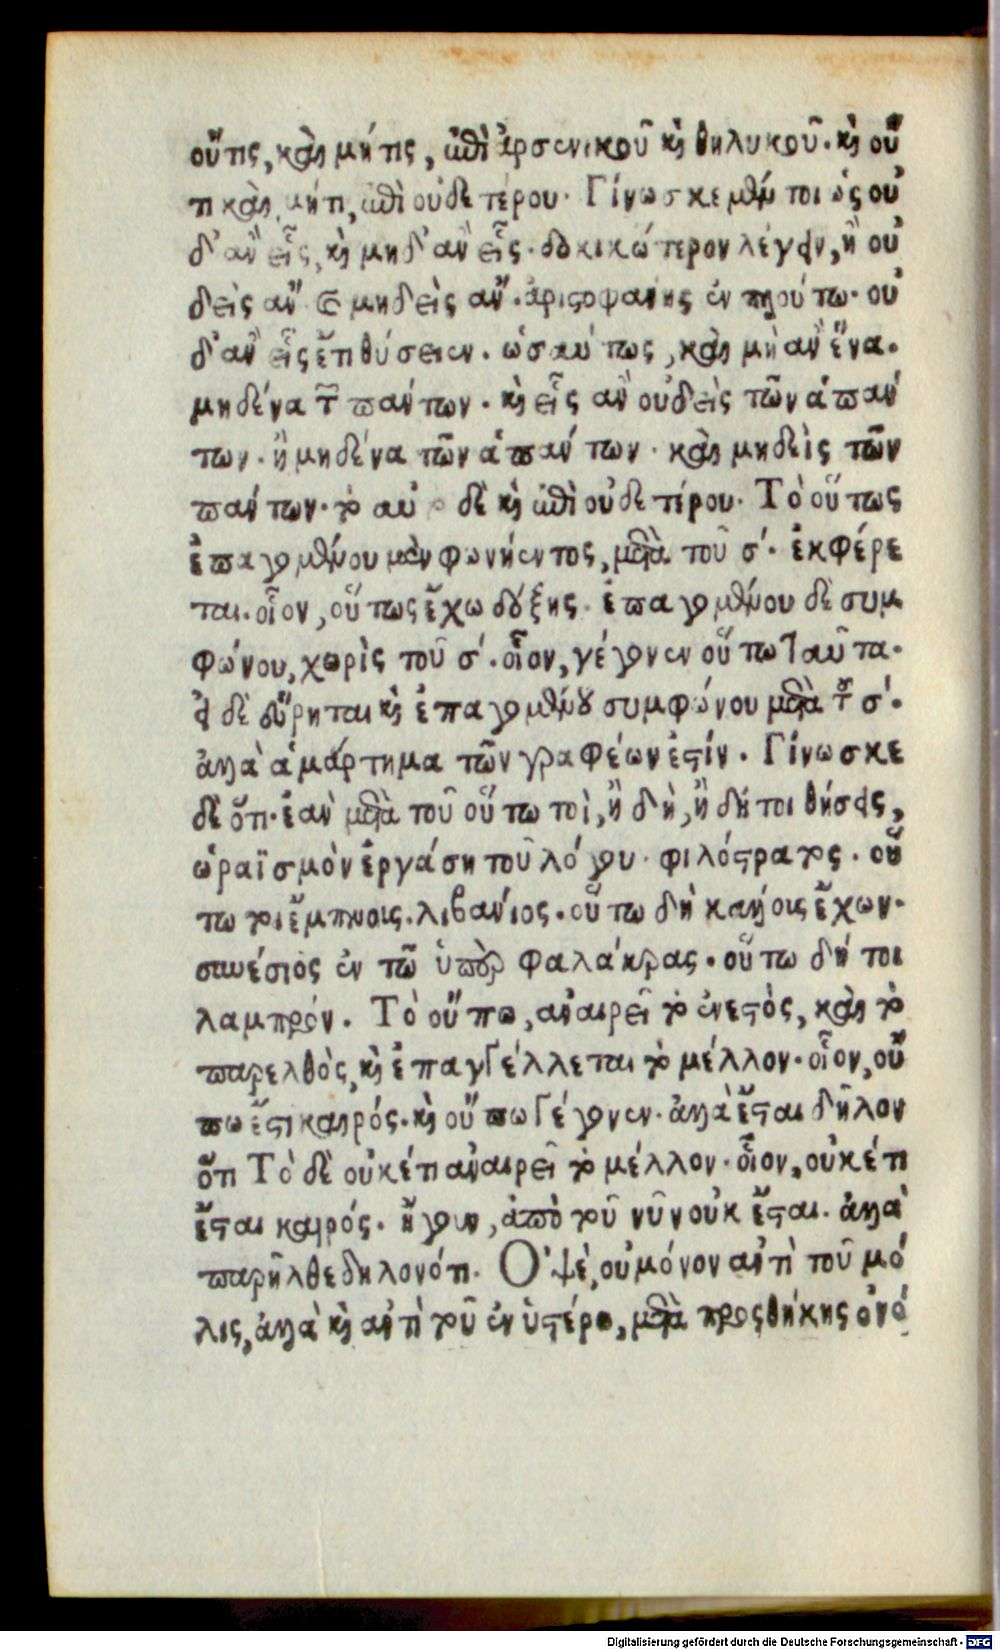 οὔτις, καὶ μήτις, ἐπὶ ἀρσενικοῦ καὶ θηλυκοῦ. καὶ οὔ
τι καὶ μήτι, ἐπὶ οὐδετέρου. Γίνωσκε μέν τοι ὡς οὐ
δ' ἂν εἷς, καὶ μηδ' ἂν εἷς. δοκικώτερον λέγειν, ἢ οὐ
δεὶς ἂν καὶ μηδεὶς ἄν. ἀριστοφάνης ἐν πλούτω. οὐ
δ' ἂν εἷς ἔτι θύσειεν. ὡσαύτως, καὶ μὴ ἂν ἕνα.
μηδένα τῶν πάντων. καὶ εἷς ἂν οὐδεὶς τῶν ἁπάν
των. ἢ μηδένα τῶν ἁπάντων. καὶ μηδεὶς τῶν
πάντων. τὸ αὐ δὲ καὶ ἐπὶ οὐδετέρου. Τὸ οὕτως
ἐπαγομένου μὲν φωνήεντος, μετὰ τοῦ σ'. ἐκφέρε
ται. οἷον, οὕτως ἔχω δόξης. ἐπαγομένου δὲ συμ
φώνου, χωρὶς τοῦ σ'. οἷον, γέγονεν οὕτω ταῦτα.
εἰ δὲ εὕρηται καὶ ἐπαγομένου συμφώνου μετὰ τοῦ σ'.
ἀλλὰ ἁμάρτημα τῶν γραφέων ἐστίν. Γίνωσκε
δὲ ὅτι. ἐὰν μετὰ τοῦ οὕτω τοὶ, ἢ δὴ, ἢ δήτοι θήσεις,
ὡραϊσμὸν ἐργάση τοῦ λόγου. φιλόστρατος. οὕ
τω τοι ἔμπνοις. λιβάνιος. οὕτω δὴ κἀλλοις ἔχων.
συνέσιος ἐν τῶ ὑπὲρ φαλάκρας. οὕτω δή τοι
λαμπρόν. Τὸ οὔπω, ἀναιρεῖ τὸ ἐνεστὸς, καὶ τὸ
παρελθὸς, καὶ ἐπαγγέλλεται τὸ μέλλον. οἷον, οὔ
πω ἔστι καιρός. καὶ οὔπω γέγονεν. ἀλλὰ ἔσται δῆλον
ὅτι Τὸ δὲ οὐκέτι ἀναιρεῖ τὸ μέλλον. οἷον, οὐκέτι
ἔσται καιρός. ἤγουν, ἀπὸ τοῦ νῦν οὐκ ἔσται. ἀλλὰ
παρῆλθε δηλονότι. Ὀψὲ, οὐ μόνον ἀντὶ τοῦ μό
λις, ἀλλὰ καὶ ἀντὶ τοῦ ἐν ὑστέρω, μετὰ προσθήκης ὀνό
Digitalisierung gefördert durch die Deutsche Forschungsgemeinschaft - DFG